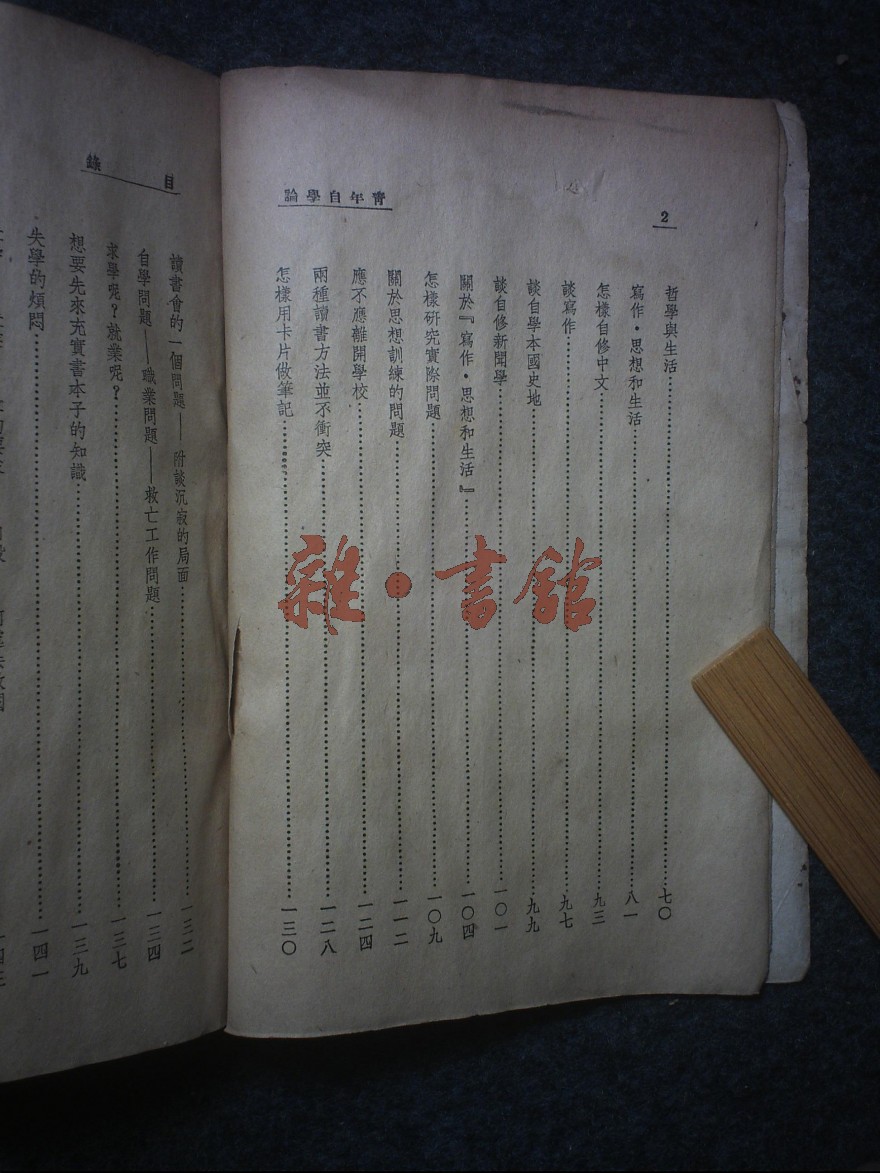 2
青年自學論
哲學與生活 七〇
寫作·思想和生活 八一
怎樣自修中文 九三
談寫作 九七
談自學本國史地 九九
談自修新聞學 一〇一
關於『寫作·思想和生活』 一〇四
怎樣研究實際問題 一〇九
關於思想訓練的問題 一一二
應不應離開學校 一二四
兩種讀書方法並不衝突 一二八
怎樣用卡片做筆記 一三〇
目錄
讀書會的一個問題——附談沉寂的局面 一三二
自學問題——職業問題——救亡工作問題 一三四
求學呢？就業呢？ 一三七
想要先來充實書本子的知識 一三九
失學的煩悶 一四一
雜·書館